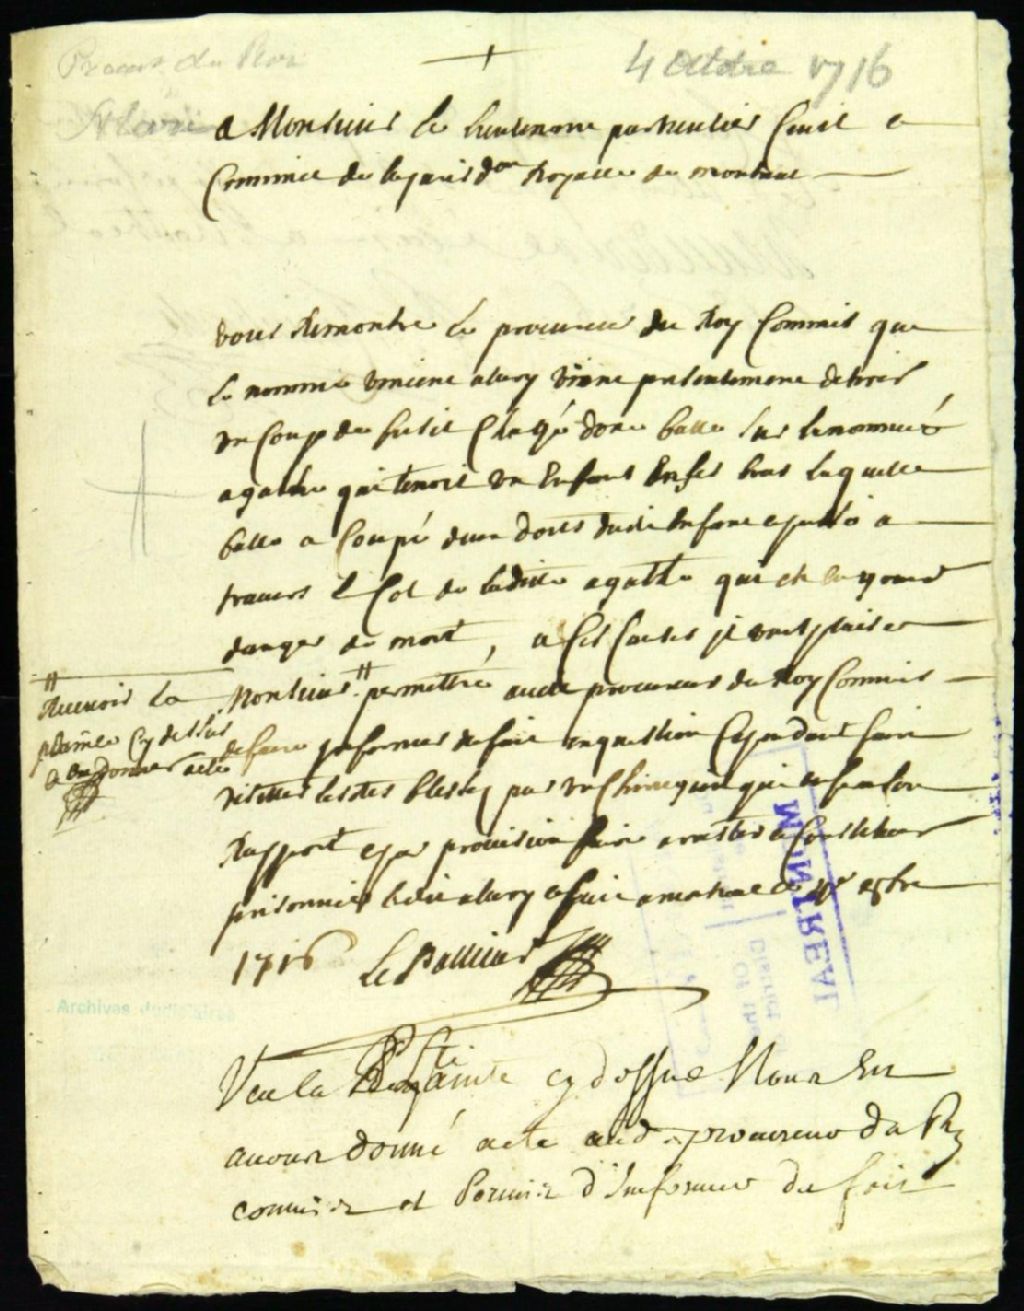 4 Octobre 1716
Procur. du Roi
a Monsieur le lieutenant particulier Civil et
Criminel de la jurisdon Royalle de montreal
vous Remontre le procureur du Roy Commis que
le nommé vincent alary vient presentement de tirer
un coup de fusil Chargé d'une balle sur la nommée
agathe qui tenoit un Enfant En ses bras laquelle
balle a Coupé deux doits dudit Enfant et passé a
travers le Col de ladite agathe qui est en grand
danger de mort, a Ces Causes il vous plaise
Monsieur " permettre audit procureur du Roy Commis
" Recevoir la
plainte Cy dessus
et en donner acte
de faire informer du fait en question Cependant faire
visitter lesdits blessés par un Chirurgien qui en fera son
Rapport et par provision faire arrester et Constituer
prisonnier ledit alary et fait a montreal ce 4e 8bre
1716 Le Pallieur
MONTREAL
Archives Judiciaires
Veu la plainte cy dessus Nous En
avons donné acte aud. procureur du Roy
commis et Permis d'Informer du fait